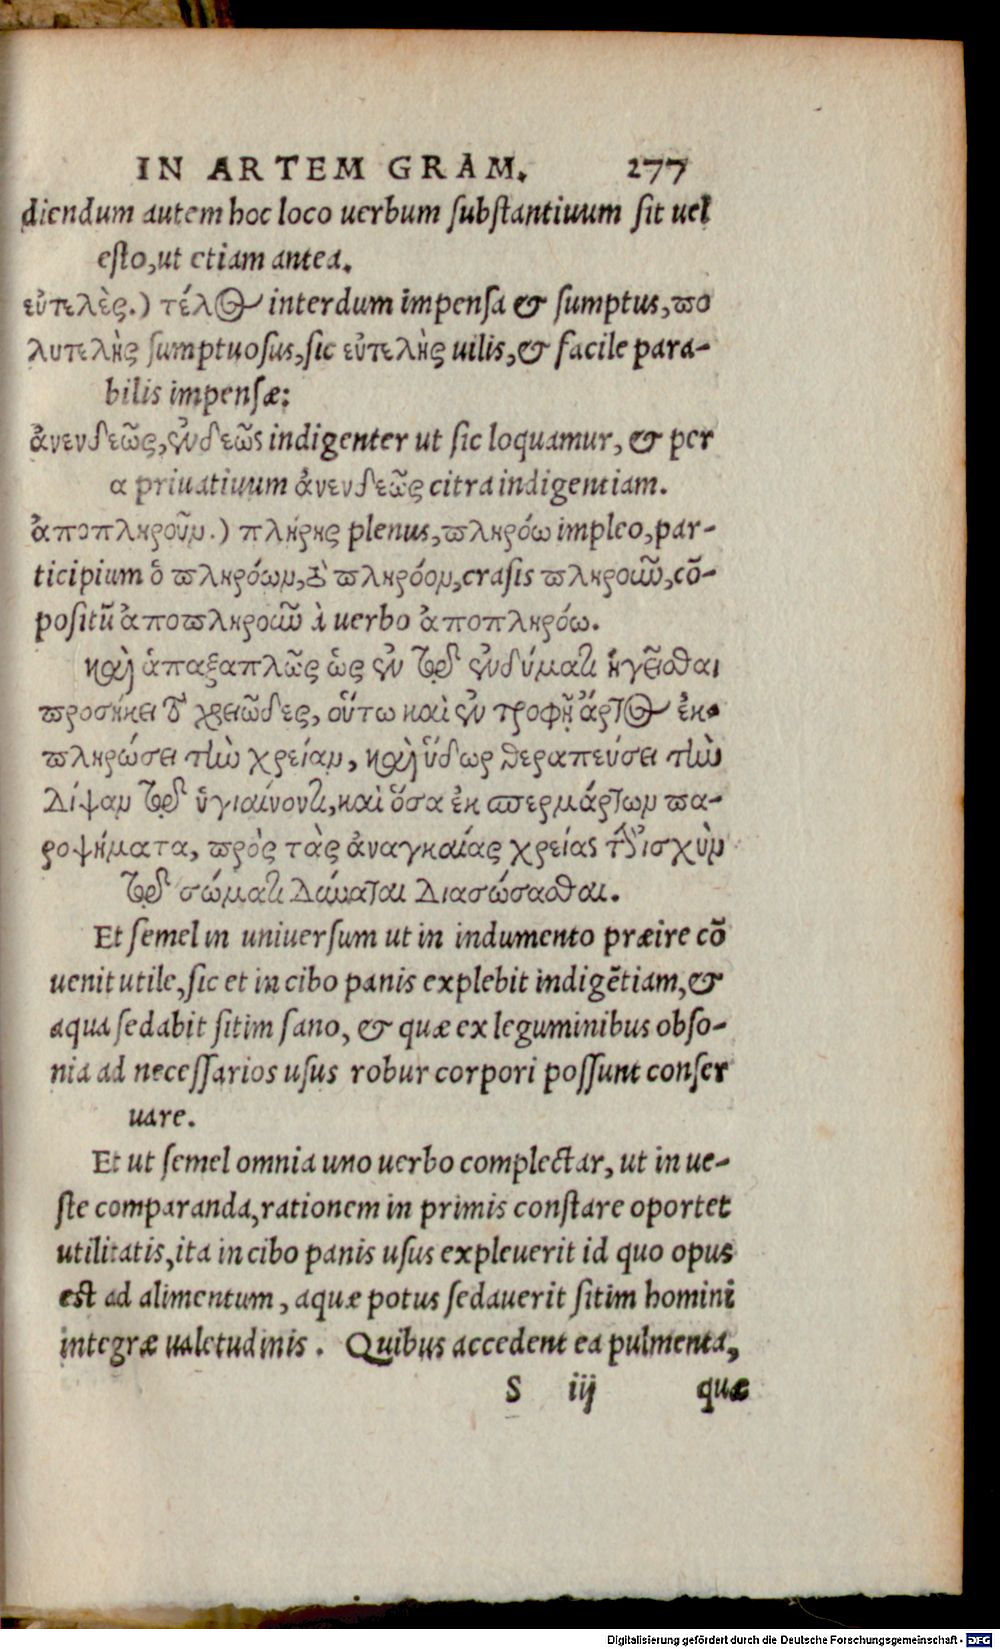 IN ARTEM GRAM. 277
diendum autem hoc loco uerbum substantiuum sit uel
esto, ut etiam antea.
εὐτελὴς.) τέλος interdum impensa & sumptus, πο
λυτελὴς sumptuosus, sic εὐτελὴς uilis, & facile para-
bilis impensæ:
ἀνενδεῶς, ἐνδεῶς indigenter ut sic loquamur, & per
α priuatiuum ἀνενδεῶς citra indigentiam.
ἀποπληροῦν.) πλήρης plenus, πληρόω impleo, par-
ticipium ὁ πληρόων, τὸ πληρόον, crasis πληροῦν, cō-
positũ ἀποπληροῦν à uerbo ἀποπληρόω.
καὶ ἁπαξαπλῶς ὡς ἐν τῷ ἐνδύματι ἡγεῖσθαι
προσήκει τὸ χρειῶδες, οὕτω καὶ ἐν τροφῇ ἄρτος ἐκ-
πληρώσει τὴν χρείαν, καὶ ὕδωρ θεραπεύσει τὴν
δίψαν τῷ ὑγιαίνοντι, καὶ ὅσα ἐκ σπερμάτων πα-
ροψήματα, πρὸς τὰς ἀναγκαίας χρείας τὴν ἰσχὺν
τῷ σώματι δύναται διασώσασθαι.
Et semel in uniuersum ut in indumento præire cō
uenit utile, sic et in cibo panis explebit indigẽtiam, &
aqua sedabit sitim sano, & quæ ex leguminibus obso-
nia ad necessarios usus robur corpori possunt conser
uare.
Et ut semel omnia uno uerbo complectar, ut in ue-
ste comparanda, rationem in primis constare oportet
utilitatis, ita in cibo panis usus expleuerit id quo opus
est ad alimentum, aquæ potus sedauerit sitim homini
integræ ualetudinis. Quibus accedent ea pulmenta,
S iij quæ
Digitalisierung gefördert durch die Deutsche Forschungsgemeinschaft - DFG